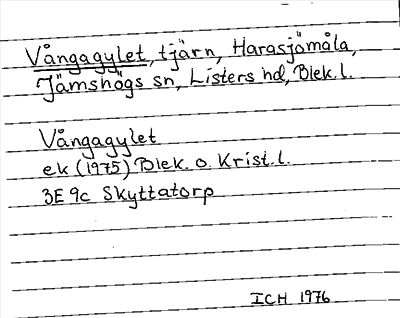 Vångagylet, tjärn, Harasjömåla,
Jämshögs sn, Listers hd, Blek. l.
Vångagylet
ek (1975) Blek. o. Krist. l.
3E 9c Skyttatorp
ICH 1976